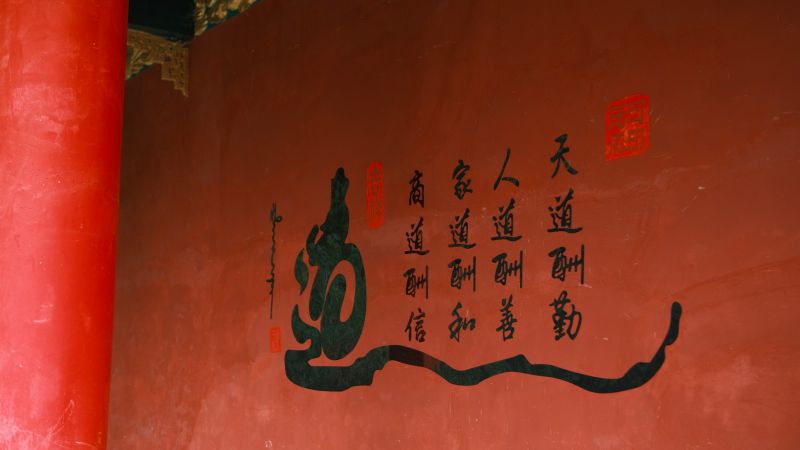 天道酬勤
人道酬善
家道酬和
商道酬信
道